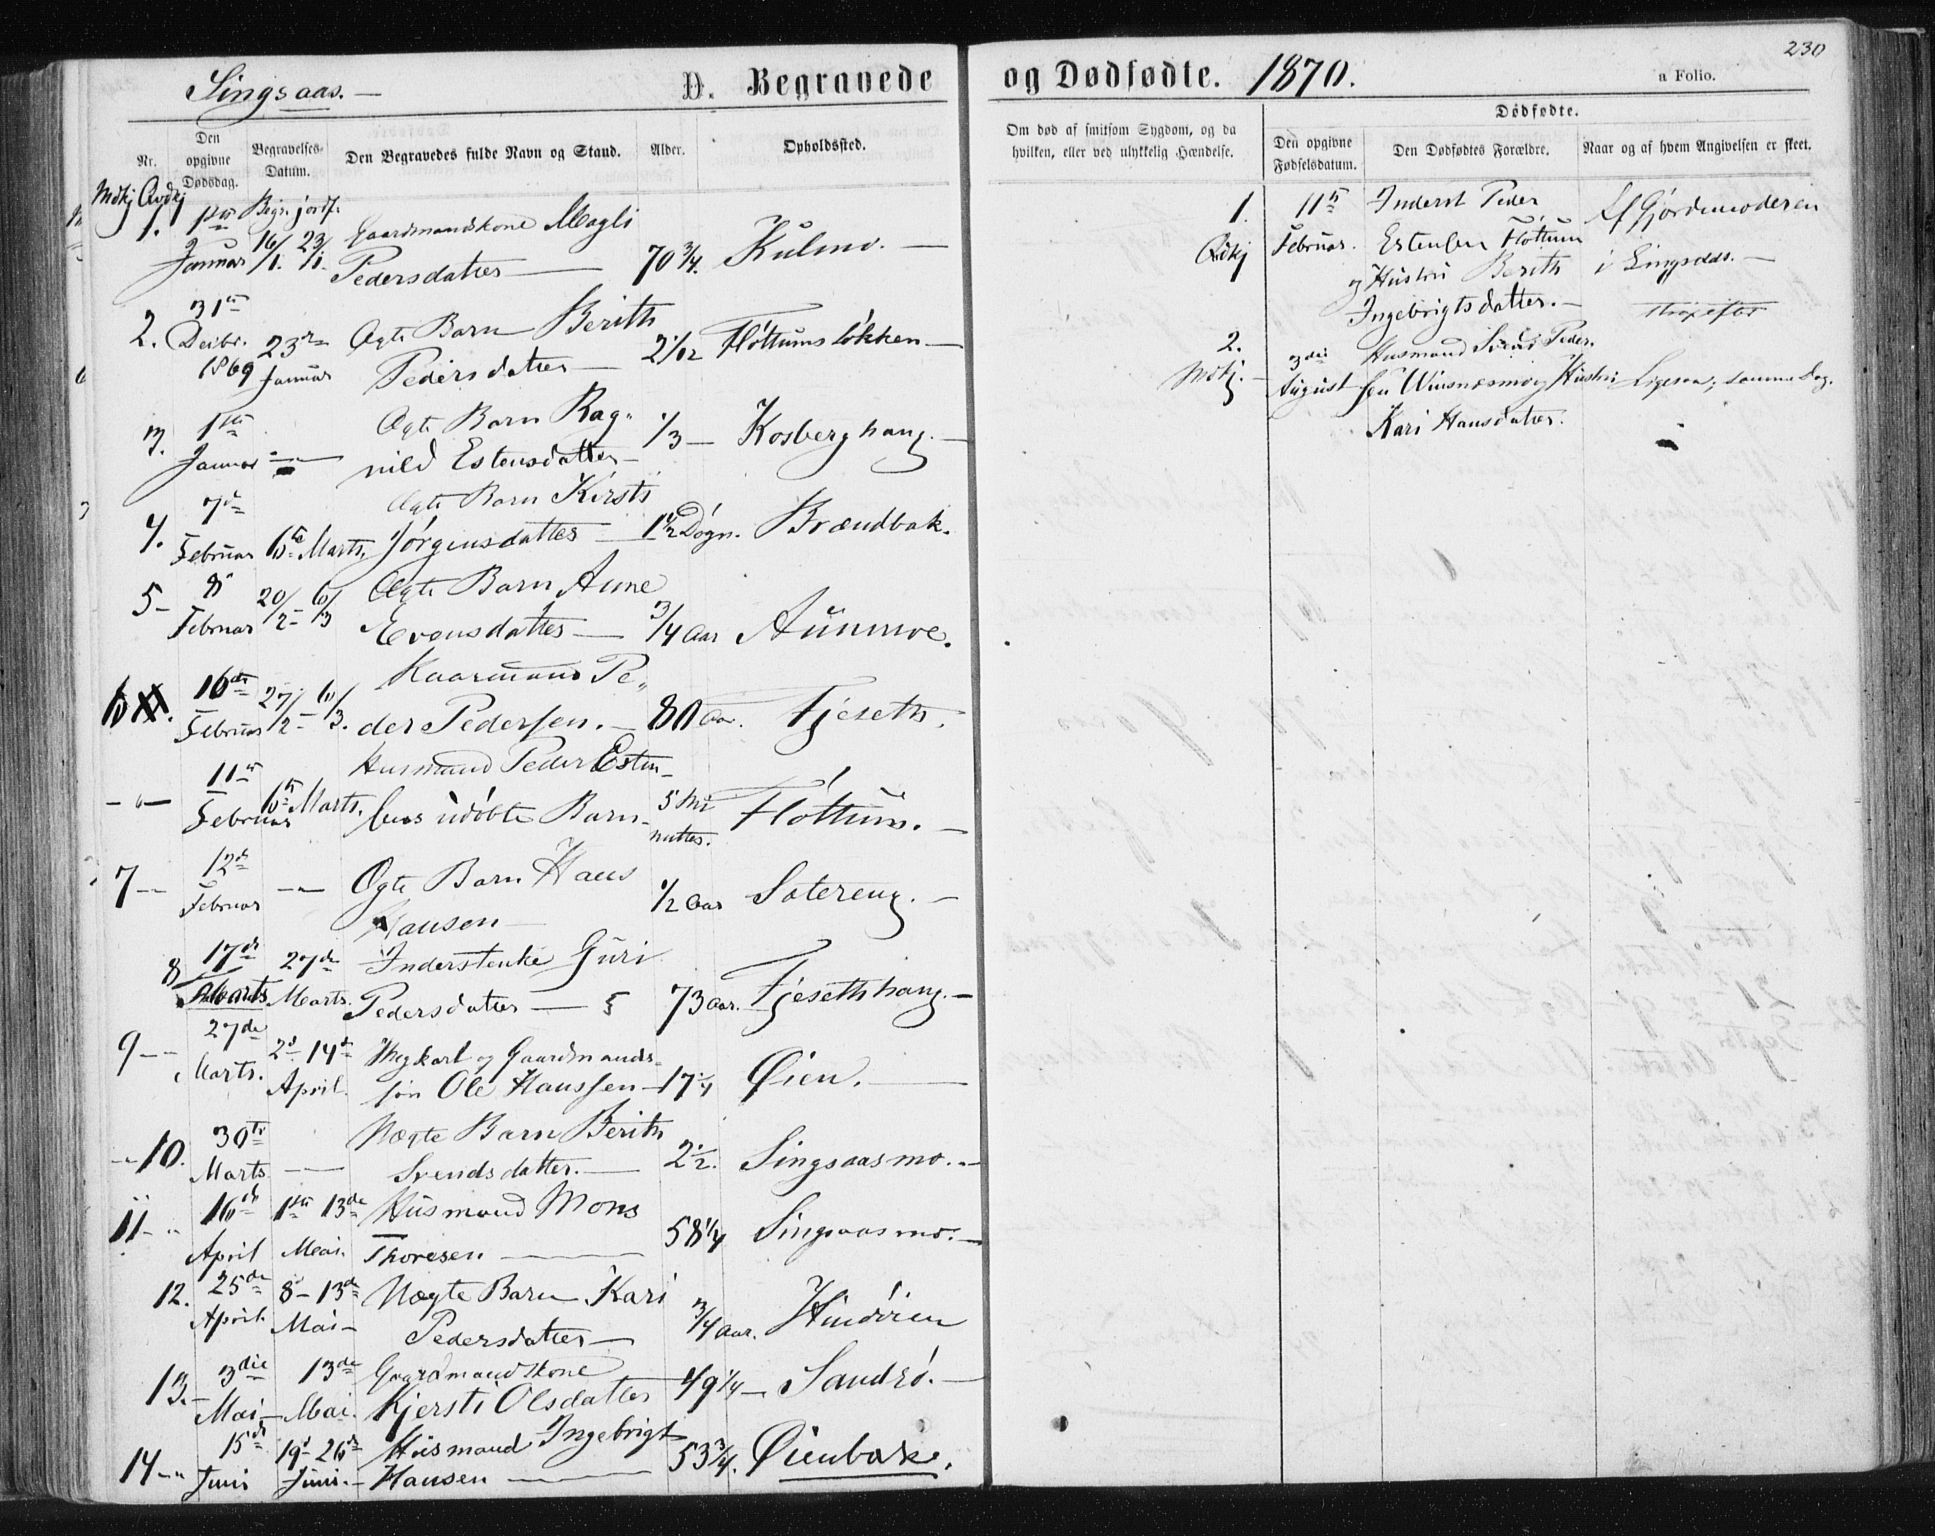 230
Singsaas. —
D. Begravede
og Dødfødte. 1870.
a Folio.
Nr.
Den opgivne Dødsdag.
Begravelses-Datum.
Den Begravedes fulde Navn og Stand.
Alder.
Opholdssted.
Om død af smitsom Sygdom, og da
hvilken, eller ved ulykkelig Hændelse.
Dødfødte.
Den opgivne
Fødselsdatum.
Den Dødfødtes Forældre.
Naar og af hvem Angivelsen er skeet.
Mdkj Qvdkj
Begr. jordf.
1. 1ste Januar 16/1. 23/1. Gaardmandskone Magli
Pedersdatter — 70 3/4. Kulmo. —
2. 31te Decbr. 1869 23de Januar Ægte Barn Berith
Pedersdatter — 2 1/12 Fløttumsløkken —
3. 1ste Januar — Ægte Barn Rag-
nild Estensdatter — 1/3 — Kosberghaug. —
4. 7de Februar 6te Marts. Ægte Barn Kirsti
Jørgensdatter — 1 1/2 Døgn. Brændbak.
5 — 8 Februar 20/2 — 6/3 Ægte Barn Anne
Evensdatter — 3/4 Aar Aunmoe.
6. 16de Februar 27/2 — 6/3. Kaarmand Pe-
der Pedersen. — 80 Aar. Fjeseth.
— 11te Februar 6te Marts. Husmand Peder Esten-
sens udøbte Barn 5 Mi
nutter. Fløttum. —
7 — 12te Februar — Ægte Barn Hans
Hansen — 1/2 Aar Sætereng. —
8 17de Marts 27de Marts. Inderstenke Guri
Pedersdatter — 73 Aar. Fjesethhaug. —
9 — 27de Marts. 2d 14de April. Ungkarl og Gaardmands-
søn Ole Hanssen — 17 1/4 Øien. —
10. 30te Marts — Uægte Barn Berith
Svendsdatter. — 2 1/2. Singsaasmo. —
11 — 16de April 1ste 13de Mai. Husmand Mons
Thoresen — 58 1/4 Singsaasmo. —
12. 25de April 8 — 13de Mai — Uægte Barn Kari
Pedersdatter — 3/4 Aar. Hindøien
13. — 3die Mai — 13de Mai. Gaardmandskone
Kjersti Olsdatter 49 1/4 — Sandrø. —
14 — 15de Juni 19d 26de Juni. — Husmand Ingebrigt
Hansen — 53 3/4. Øienbake.
1. Qdkj 11te Februar. Inderst Peder
Estensen Fløttum
og Hustru Berith
Ingebrigtsdatter. —
Af Gjordemoderen
i Singsaas. —
2. Mdkj. — 3die August Husmand Svend Peder-
sen Winsnesmo og Hustru
Kari Hansdatter.
Ligesaa, samme Dag.